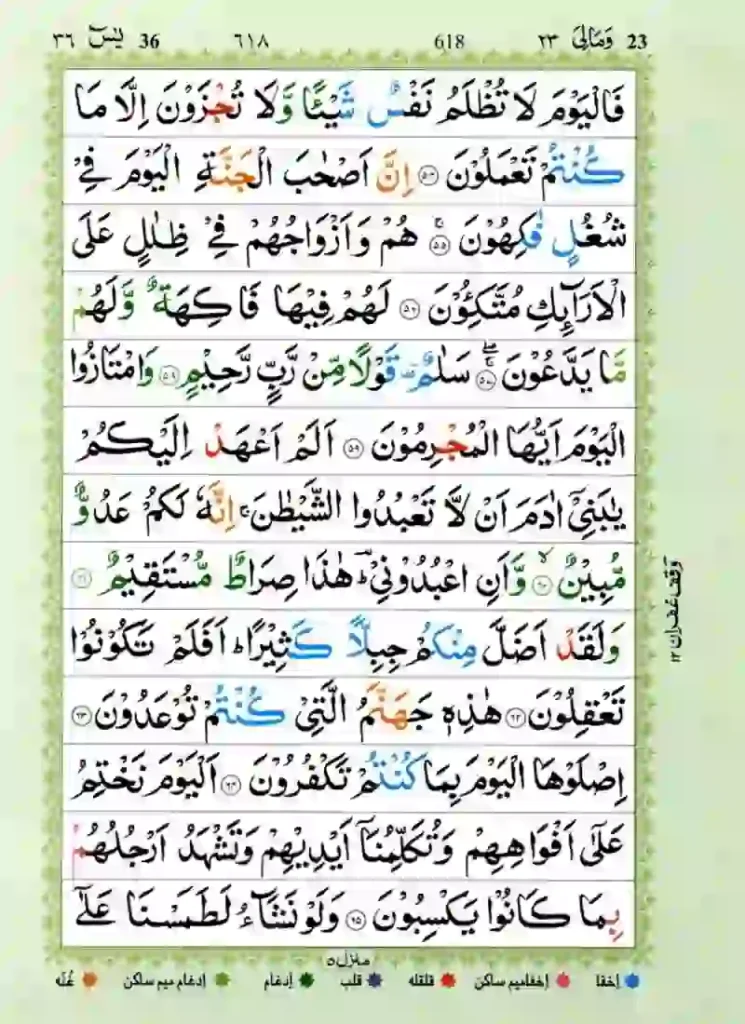 23 وَمَالِیَ ٢٣ 618 ٦١٨ 36 يٰسٓ ٣٦
فَالْيَوْمَ لَا تُظْلَمُ نَفْسٌ شَيْئًا وَّلَا تُجْزَوْنَ اِلَّا مَا
كُنْتُمْ تَعْمَلُوْنَ ﴿۵۴﴾ اِنَّ اَصْحٰبَ الْجَنَّةِ الْيَوْمَ فِيْ
شُغُلٍ فٰكِهُوْنَ ۚ﴿۵۵﴾ هُمْ وَاَزْوَاجُهُمْ فِيْ ظِلٰلٍ عَلَى
الْاَرَآئِكِ مُتَّكِئُوْنَ ﴿۵۶﴾ لَهُمْ فِيْهَا فَاكِهَةٌ وَّلَهُمْ
مَّا يَدَّعُوْنَ ۚۖ﴿۵۷﴾ سَلٰمٌ ۟ قَوْلًا مِّنْ رَّبٍّ رَّحِيْمٍ ﴿۵۸﴾ وَامْتَازُوا
الْيَوْمَ اَيُّهَا الْمُجْرِمُوْنَ ﴿۵۹﴾ اَلَمْ اَعْهَدْ اِلَيْكُمْ
يٰبَنِيْٓ اٰدَمَ اَنْ لَّا تَعْبُدُوا الشَّيْطٰنَ ۚ اِنَّهٗ لَكُمْ عَدُوٌّ
مُّبِيْنٌ ۙ﴿۶۰﴾ وَّاَنِ اعْبُدُوْنِيْ ؔؕ هٰذَا صِرَاطٌ مُّسْتَقِيْمٌ ﴿۶۱﴾
وَلَقَدْ اَضَلَّ مِنْكُمْ جِبِلًّا كَثِيْرًا ؕ اَفَلَمْ تَكُوْنُوْا
تَعْقِلُوْنَ ﴿۶۲﴾ هٰذِهٖ جَهَنَّمُ الَّتِيْ كُنْتُمْ تُوْعَدُوْنَ ﴿۶۳﴾
اِصْلَوْهَا الْيَوْمَ بِمَا كُنْتُمْ تَكْفُرُوْنَ ﴿۶۴﴾ اَلْيَوْمَ نَخْتِمُ
عَلٰٓى اَفْوَاهِهِمْ وَتُكَلِّمُنَآ اَيْدِيْهِمْ وَتَشْهَدُ اَرْجُلُهُمْ
بِمَا كَانُوْا يَكْسِبُوْنَ ﴿۶۵﴾ وَلَوْ نَشَآءُ لَطَمَسْنَا عَلٰٓى
وقف غفران ١٢
منزل ٥
اِخفا اِخفامیم ساکن قلقله قلب اِدغام اِدغام میم ساکن غُنّه